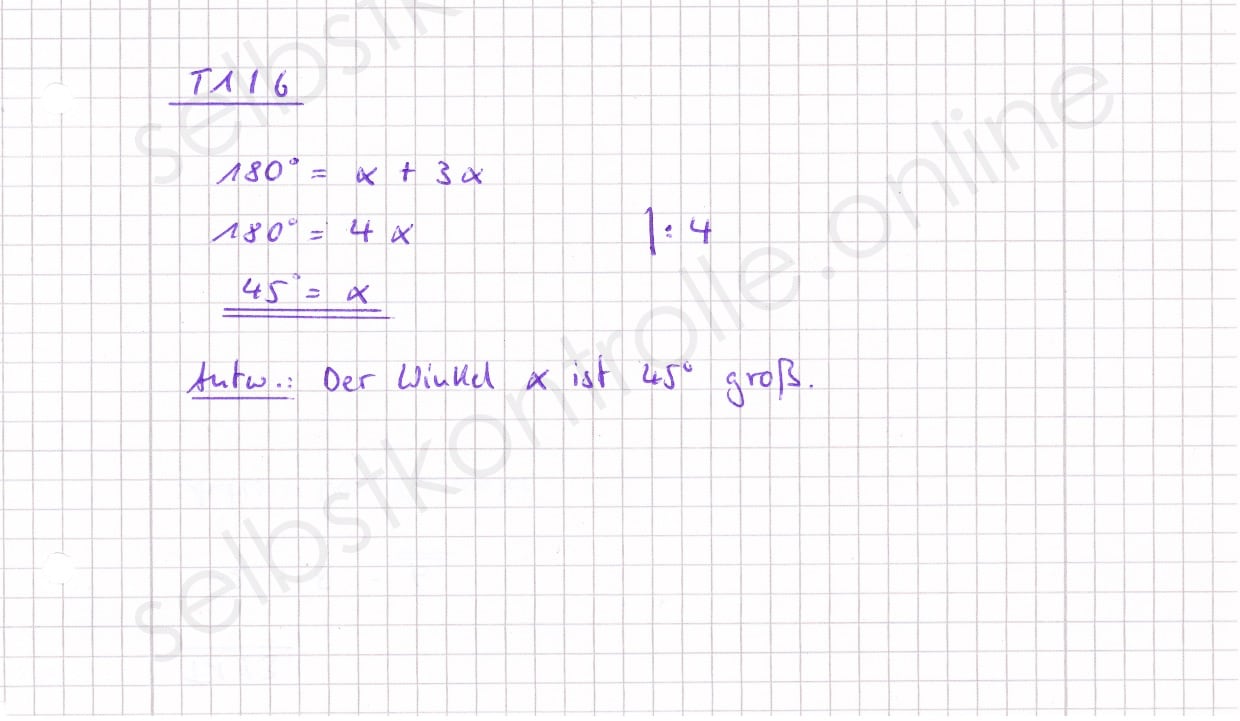 T1/6
180° = α + 3α
180° = 4 α |: 4
45° = α
Antw.: Der Winkel α ist 45° groß.
selbstk
selbstkontrolle.online